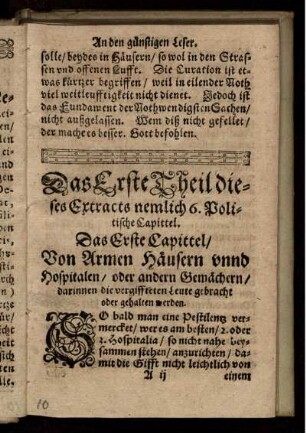 An den günstigen Leser.
solle/ beydes in Häusern/ so wol in den Stras-
sen vnd offenen Lufft. Die Curation ist et-
was kürtzer begriffen/ weil in eilender Noth
viel weitleufftigkeit nicht dienet. Jedoch ist
das Fundament der Nothwendigsten Sachen/
nicht außgelassen. Wem diß nicht gefellet/
der mache es besser. Gott befohlen.
Das Erste Theil die-
ses Extracts nemlich 6. Poli-
tische Capittel.
Das Erste Capittel/
Von Armen Häusern vnnd
Hospitalen/ oder andern Gemächern/
darinnen die vergiffteten Leute gebracht
oder gehalten werden.
SO bald man eine Pestilentz ver-
mercket/ wer es am besten/ 2. oder
3. Hospitalia/ so nicht nahe bey-
sammen stehen/ anzurichten/ da-
mit die Gifft nicht leichtlich von
A ij einem
10